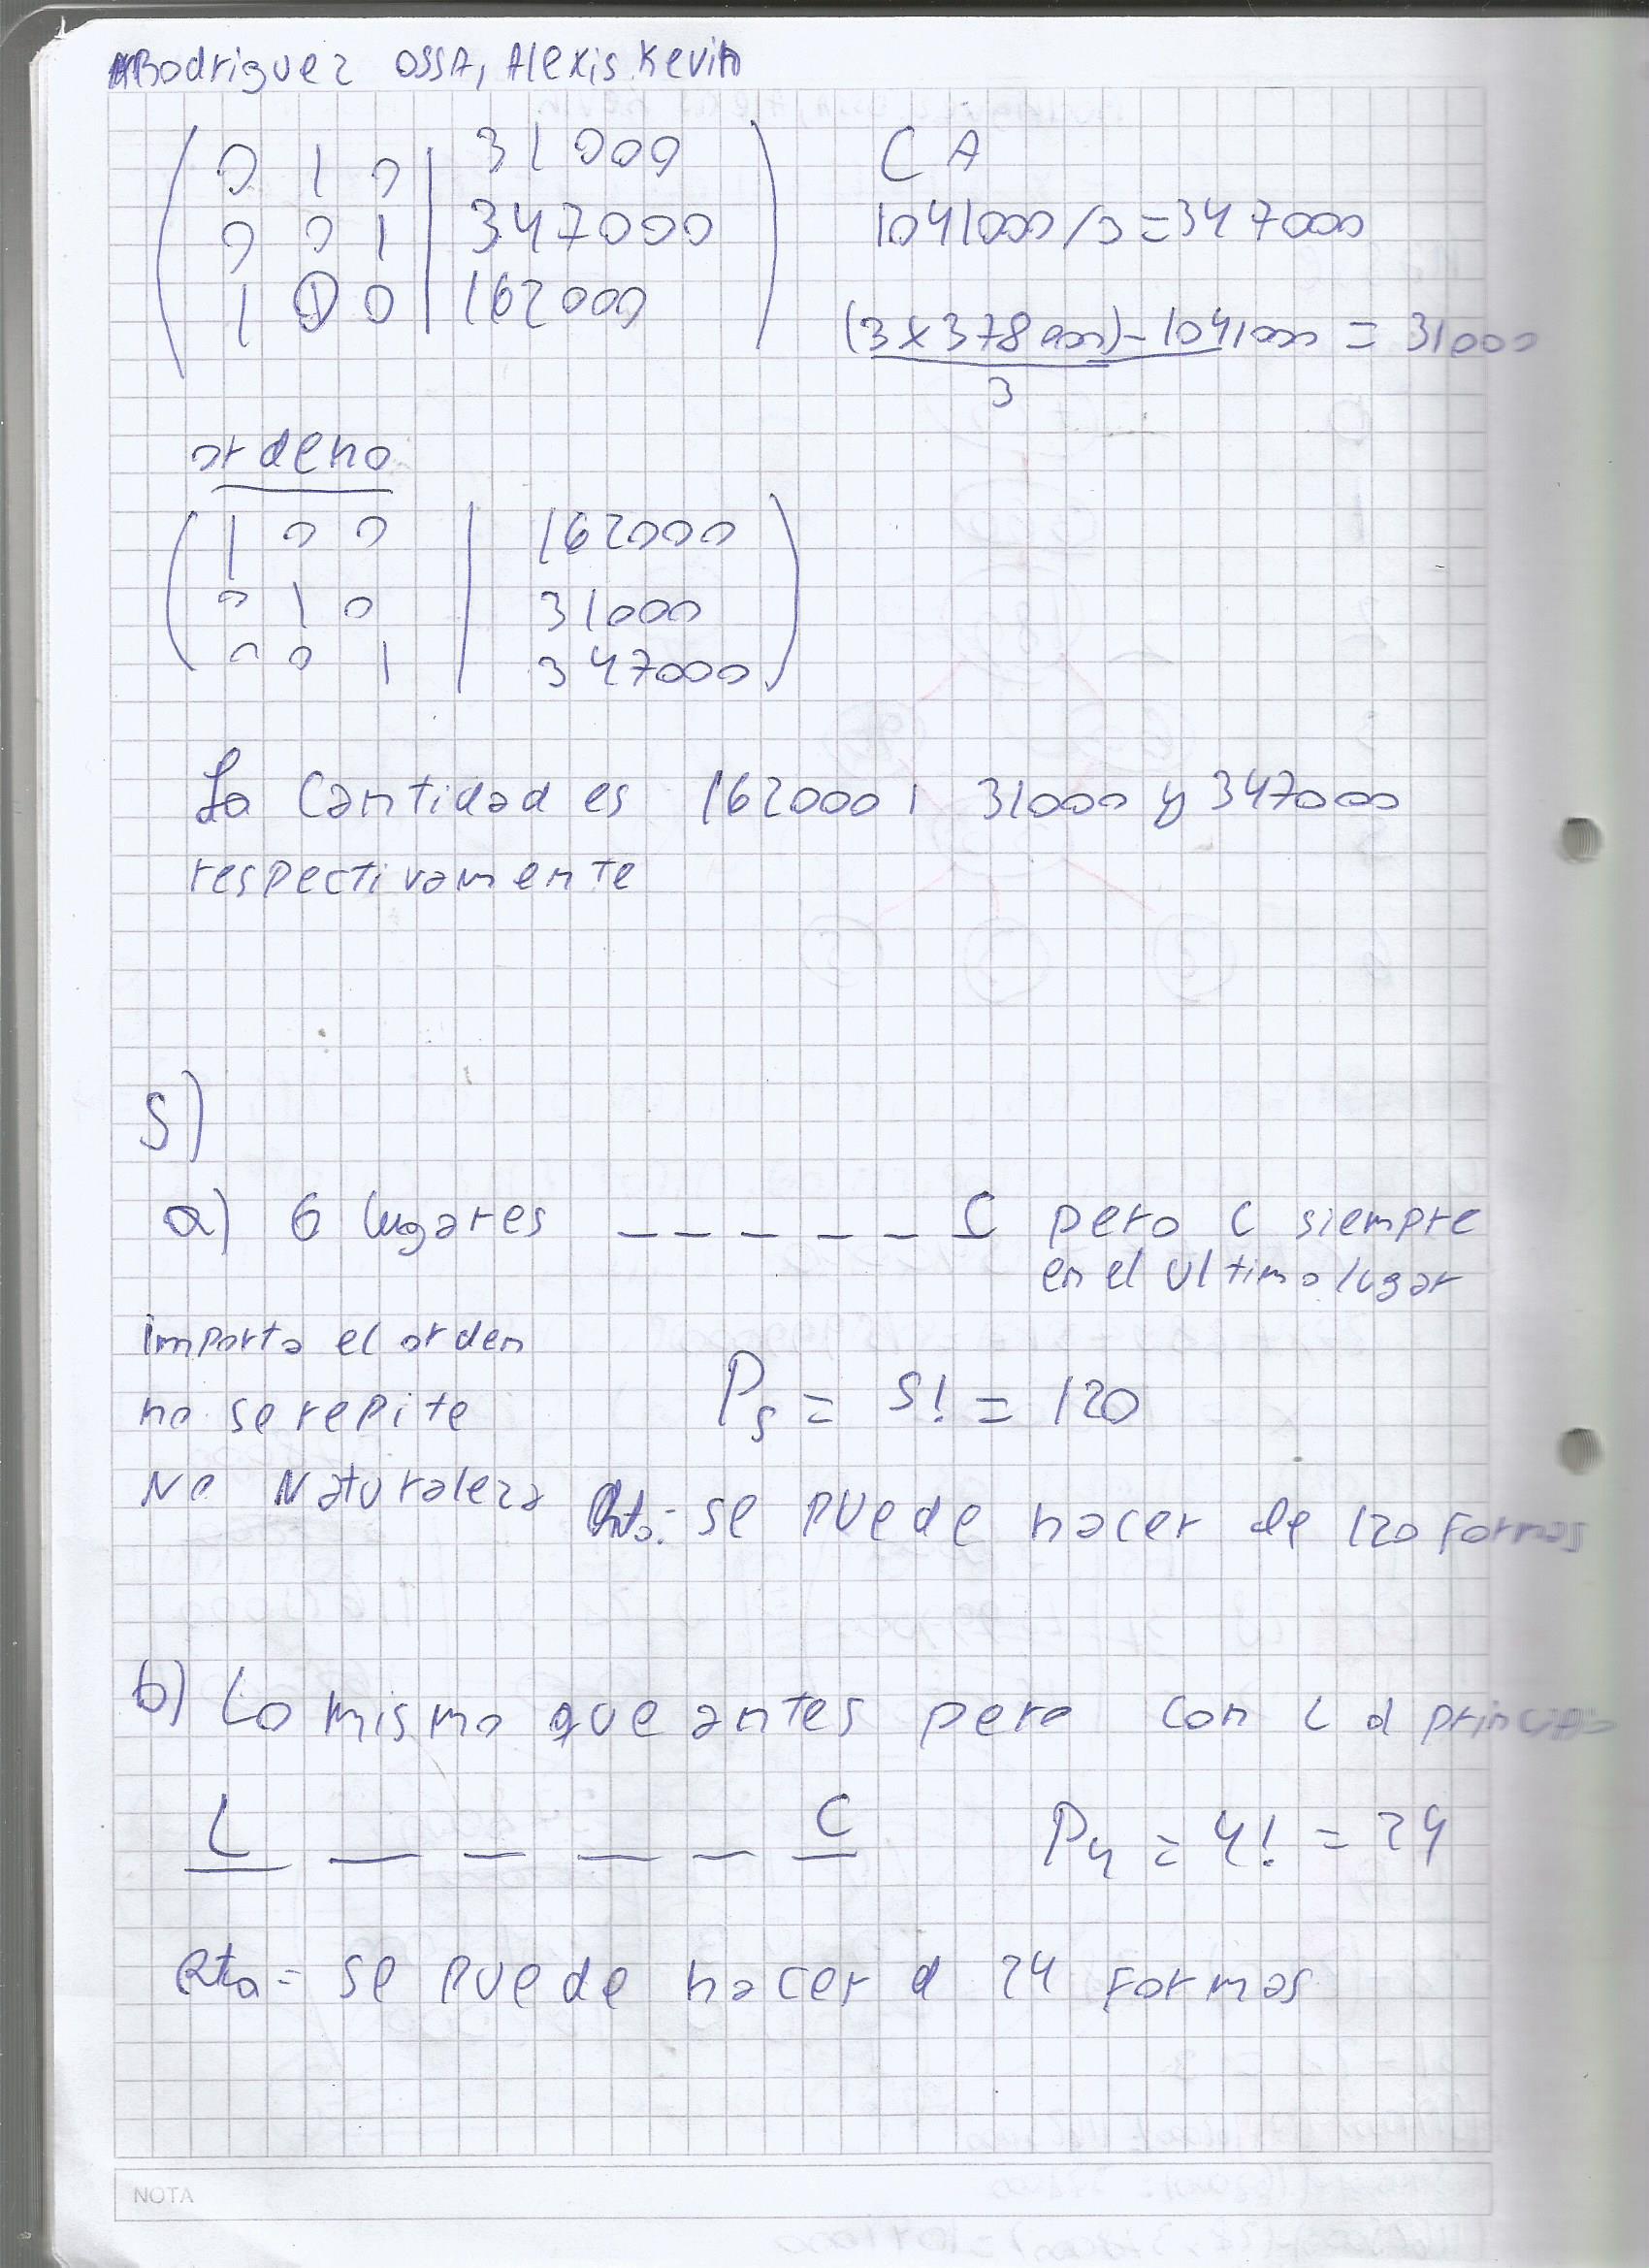 Rodriguez OSSA, Alexis Kevin
0 1 0 | 31000
0 0 1 | 347000
1 0 0 | 162000
CA
1041000/3=347000
(3x378000)-1041000 = 31000
3
ordeno
1 0 0 | 162000
0 1 0 | 31000
0 0 1 | 347000
La Cantidad es 162000, 31000 y 347000
respectivamente
5)
a) 6 lugares _ _ _ _ _ C pero C siempre
en el ultimo lugar
importa el orden
no se repite
P5 = 5! = 120
No Naturaleza
Rta: se puede hacer de 120 formas
b) Lo mismo que antes pero con L al principio
L _ _ _ _ C P4 = 4! = 24
Rta = se puede hacer d 24 formas
NOTA